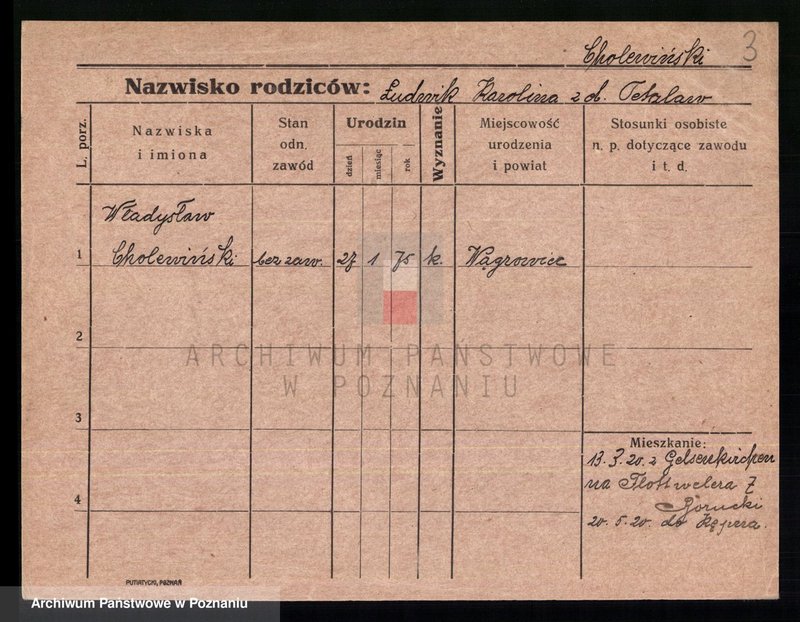 Cholewiński 3
Nazwisko rodziców: Ludwik Karolina z d. Tetalaw
L. porz.
Nazwiska
i imiona
Stan
odn.
zawód
Urodzin
dzień
miesiąc
rok
Wyznanie
Miejscowość
urodzenia
i powiat
Stosunki osobiste
n. p. dotyczące zawodu
i t. d.
Władysław
1 Cholewiński bez zaw. 27 1 75 k. Wągrowiec
2
ARCHIWUM PAŃSTWOWE
W POZNANIU
3
Mieszkanie:
13. 3. 20. z Gelsenkirchen
4 na Flottwelera 7
Górucki
20. 5. 20. do
PUTIATYCKI, POZNAŃ
Archiwum Państwowe w Poznaniu